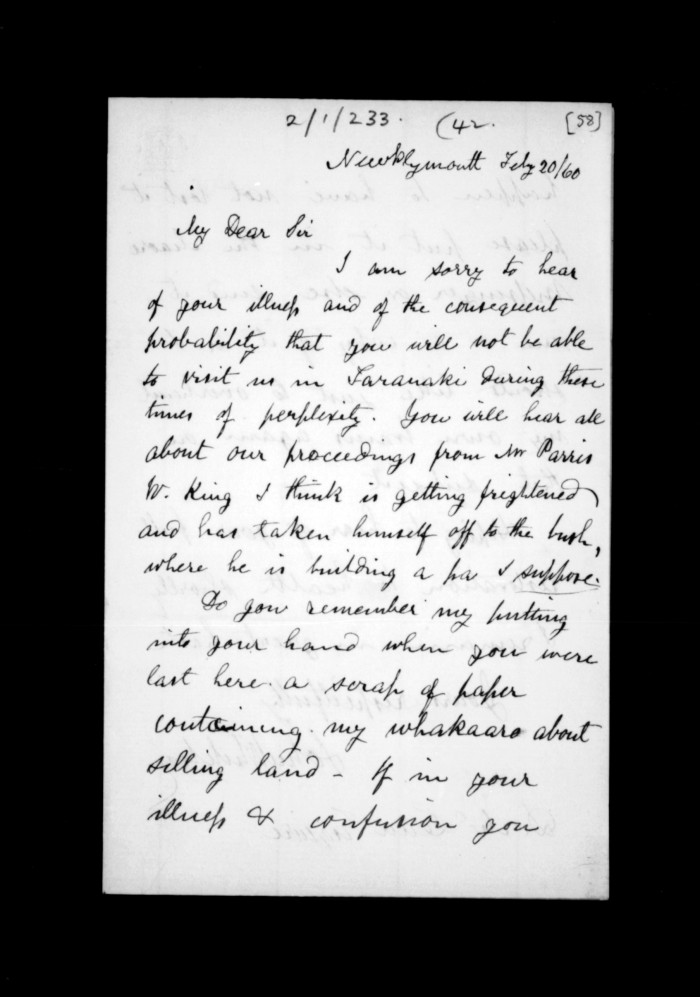 2/1/233. (42. [58]
New Plymouth Feby 20/60
My Dear Sir
I am sorry to hear
of your illness and of the consequent
probability that you will not be able
to visit us in Taranaki during these
times of perplexity. You will hear all
about our proceedings from Mr Parris
W. King I think is getting frightened
and has taken himself off to the bush,
where he is building a pa I suppose.
Do you remember my putting
into your hand when you were
last here a scrap of paper
containing my whakaaro about
selling land - If in your
illness & confusion you